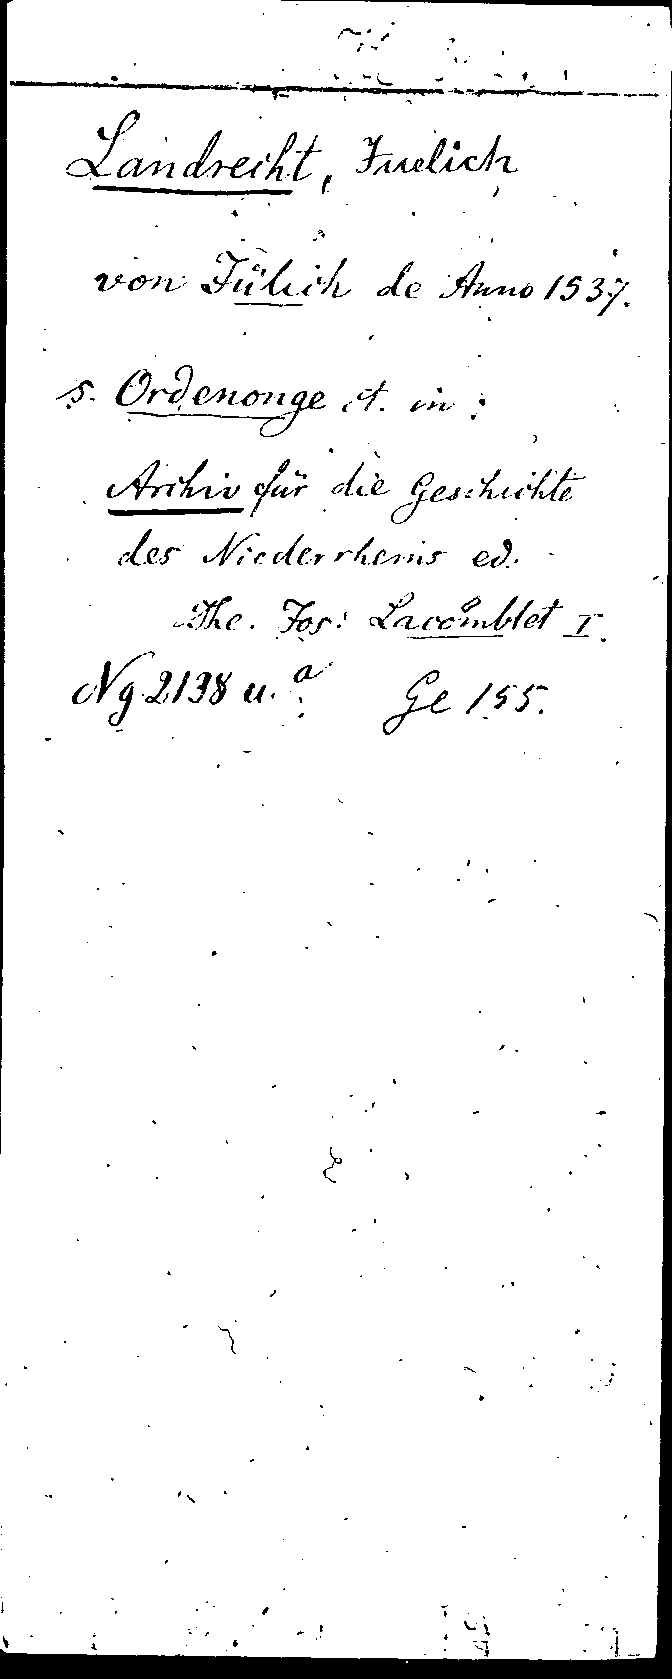 Landrecht, Juelich
von Jülich de Anno 1537.
s. Ordenonge et. in:
Archiv für die Geschichte
des Niederrheins ed.
The. Jos: Lacomblet I.
Ng 2138 u. a Ge 155.